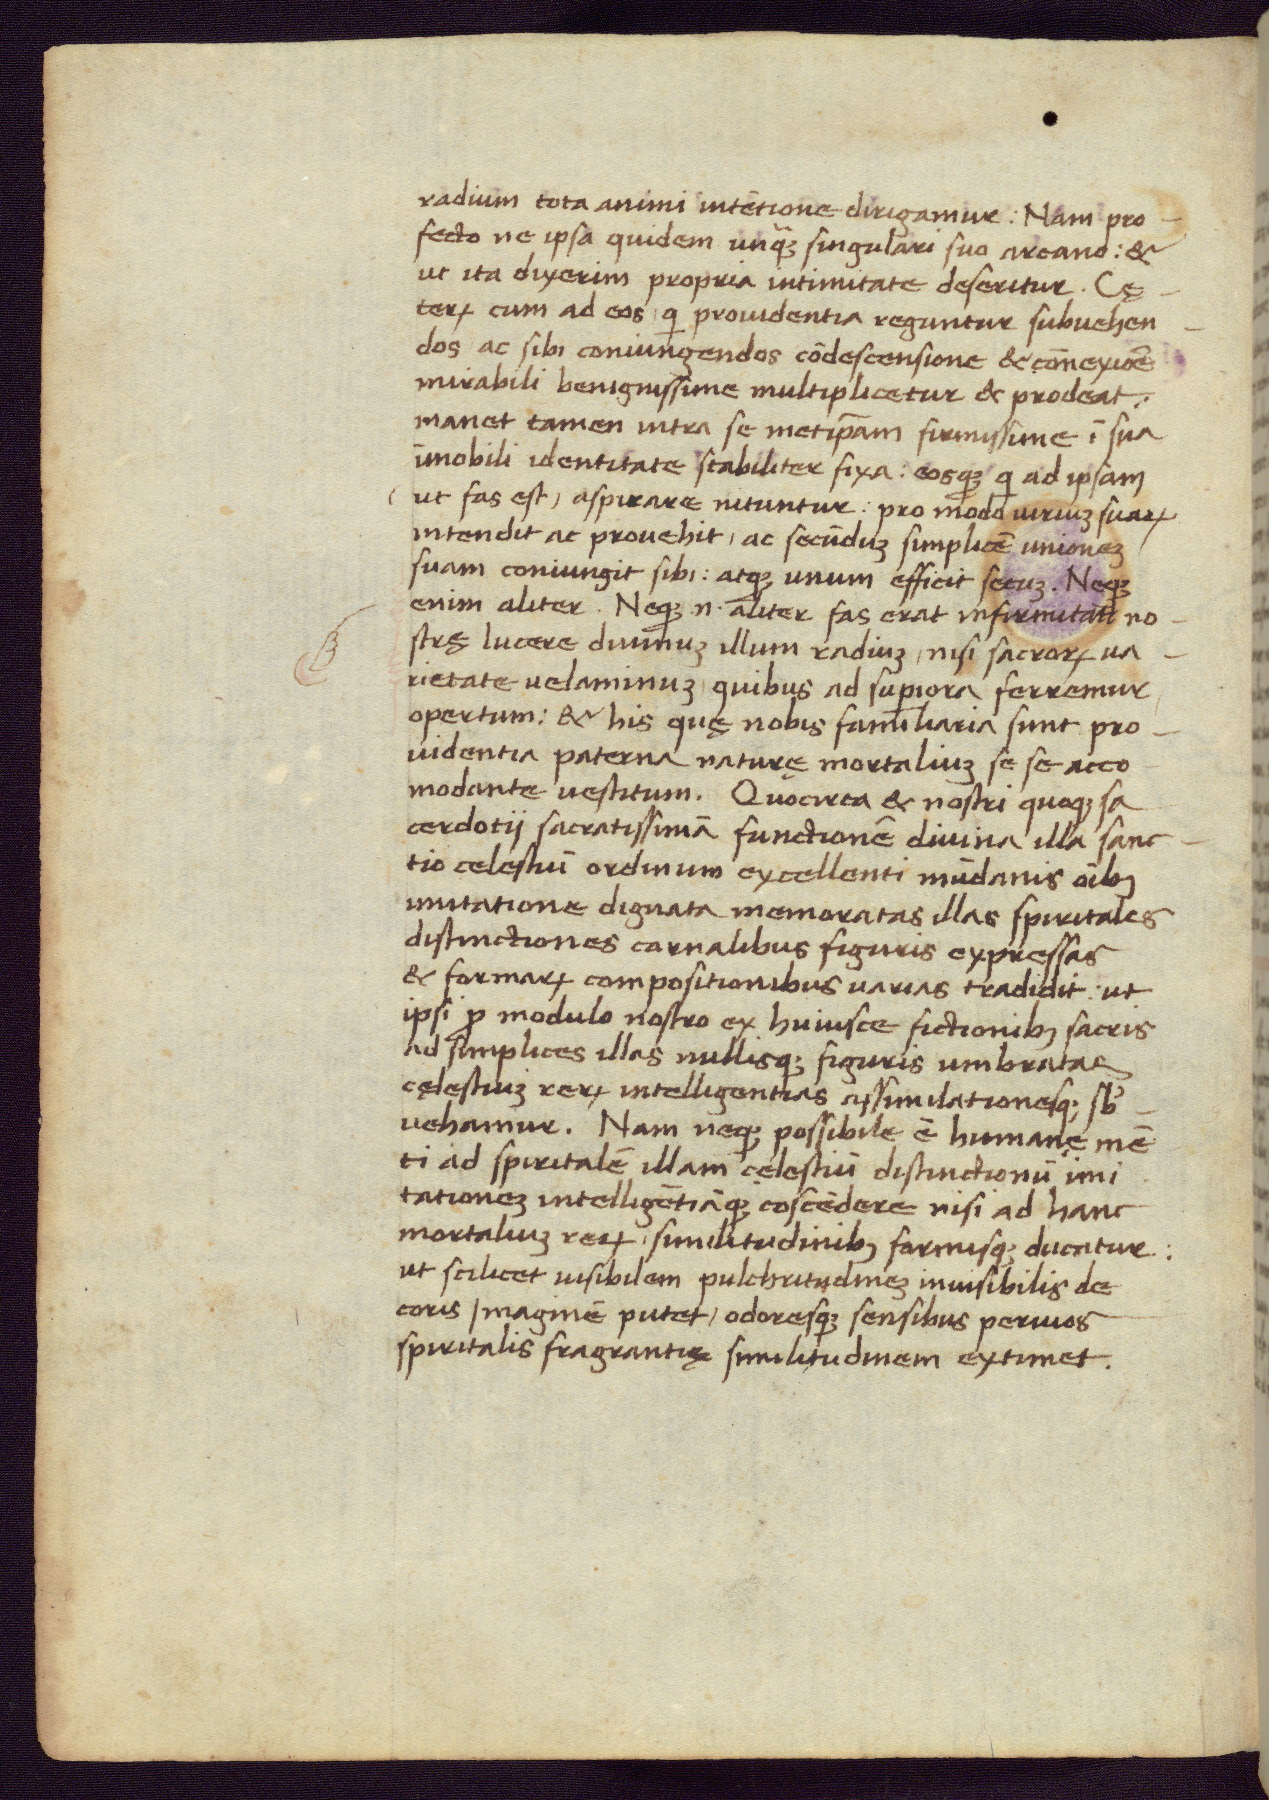 radium tota animi intētione dirigamur : Nam pro-
fecto ne ipsa quidem unq̃ꝫ singulari suo arcano : &
ut ita dixerim propria intimitate deseritur . Cę-
terꝝ cum ad eos , q̄ prouidentia reguntur subuehen-
dos ac sibi coniungendos cōdescensione & cōnexiōe
mirabili benignissime multiplicetur & prodeat ;
manet tamen intra se metip̄am firmissime ī sua
īmobili identitate stabiliter fixa : eosqꝫ q̄ ad ipsam
ut fas est , aspirare nituntur : pro modo uiriuꝫ suaꝝ
intendit ac prouehit , ac secūduꝫ simplicē unioneꝫ
suam coniungit sibi : atqꝫ unum efficit secuꝫ . Neqꝫ
enim aliter . Neqꝫ .n. aliter fas erat infirmitati no-
strę lucere diuinuꝫ illum radiuꝫ , nisi sacrorꝝ ua-
rietate uelaminuꝫ , quibus ad sup̱iora ferremur ,
opertum : & his quę nobis familiaria sunt pro-
uidentia paterna naturę mortaliuꝫ se se acco
modante uestitum . Quocirca & nostri quoqꝫ sa
cerdotij sacratissimā functionē diuina illa sanc-
tio celestiū ordinum excellenti mūdanis oībꝫ
imitatione dignata memoratas illas spiritales
distinctiones carnalibus figuris expressas
& formarꝝ compositionibus uarias tradidit : ut
ipsi ꝓ modulo nostro ex huiusce fictionibꝫ sacris
ad simplices illas nullisqꝫ figuris umbratas
cęlestiuꝫ rerꝝ intelligentias assimilationesqꝫ sb̓-
uehamur . Nam neqꝫ possibile ē humanę mē
ti ad spiritalē illam cęlestiū distinctionū imi
tationeꝫ intelligētiāqꝫ cōscēdere nisi ad hanc
mortaliuꝫ rerꝝ , similitudinibꝫ formisqꝫ ducatur :
ut scilicet uisibilem pulchritudineꝫ inuisibilis de
coris Imaginē putet , odoresqꝫ sensibus peruios
spiritalis fragrantię similitudinem extimet .